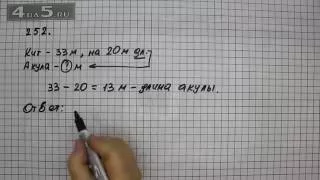 4ALL5.RU
252.
Кит - 33 м, на 20 м дл.
Акула - ? м
33 - 20 = 13 м - длина акулы.
Ответ: